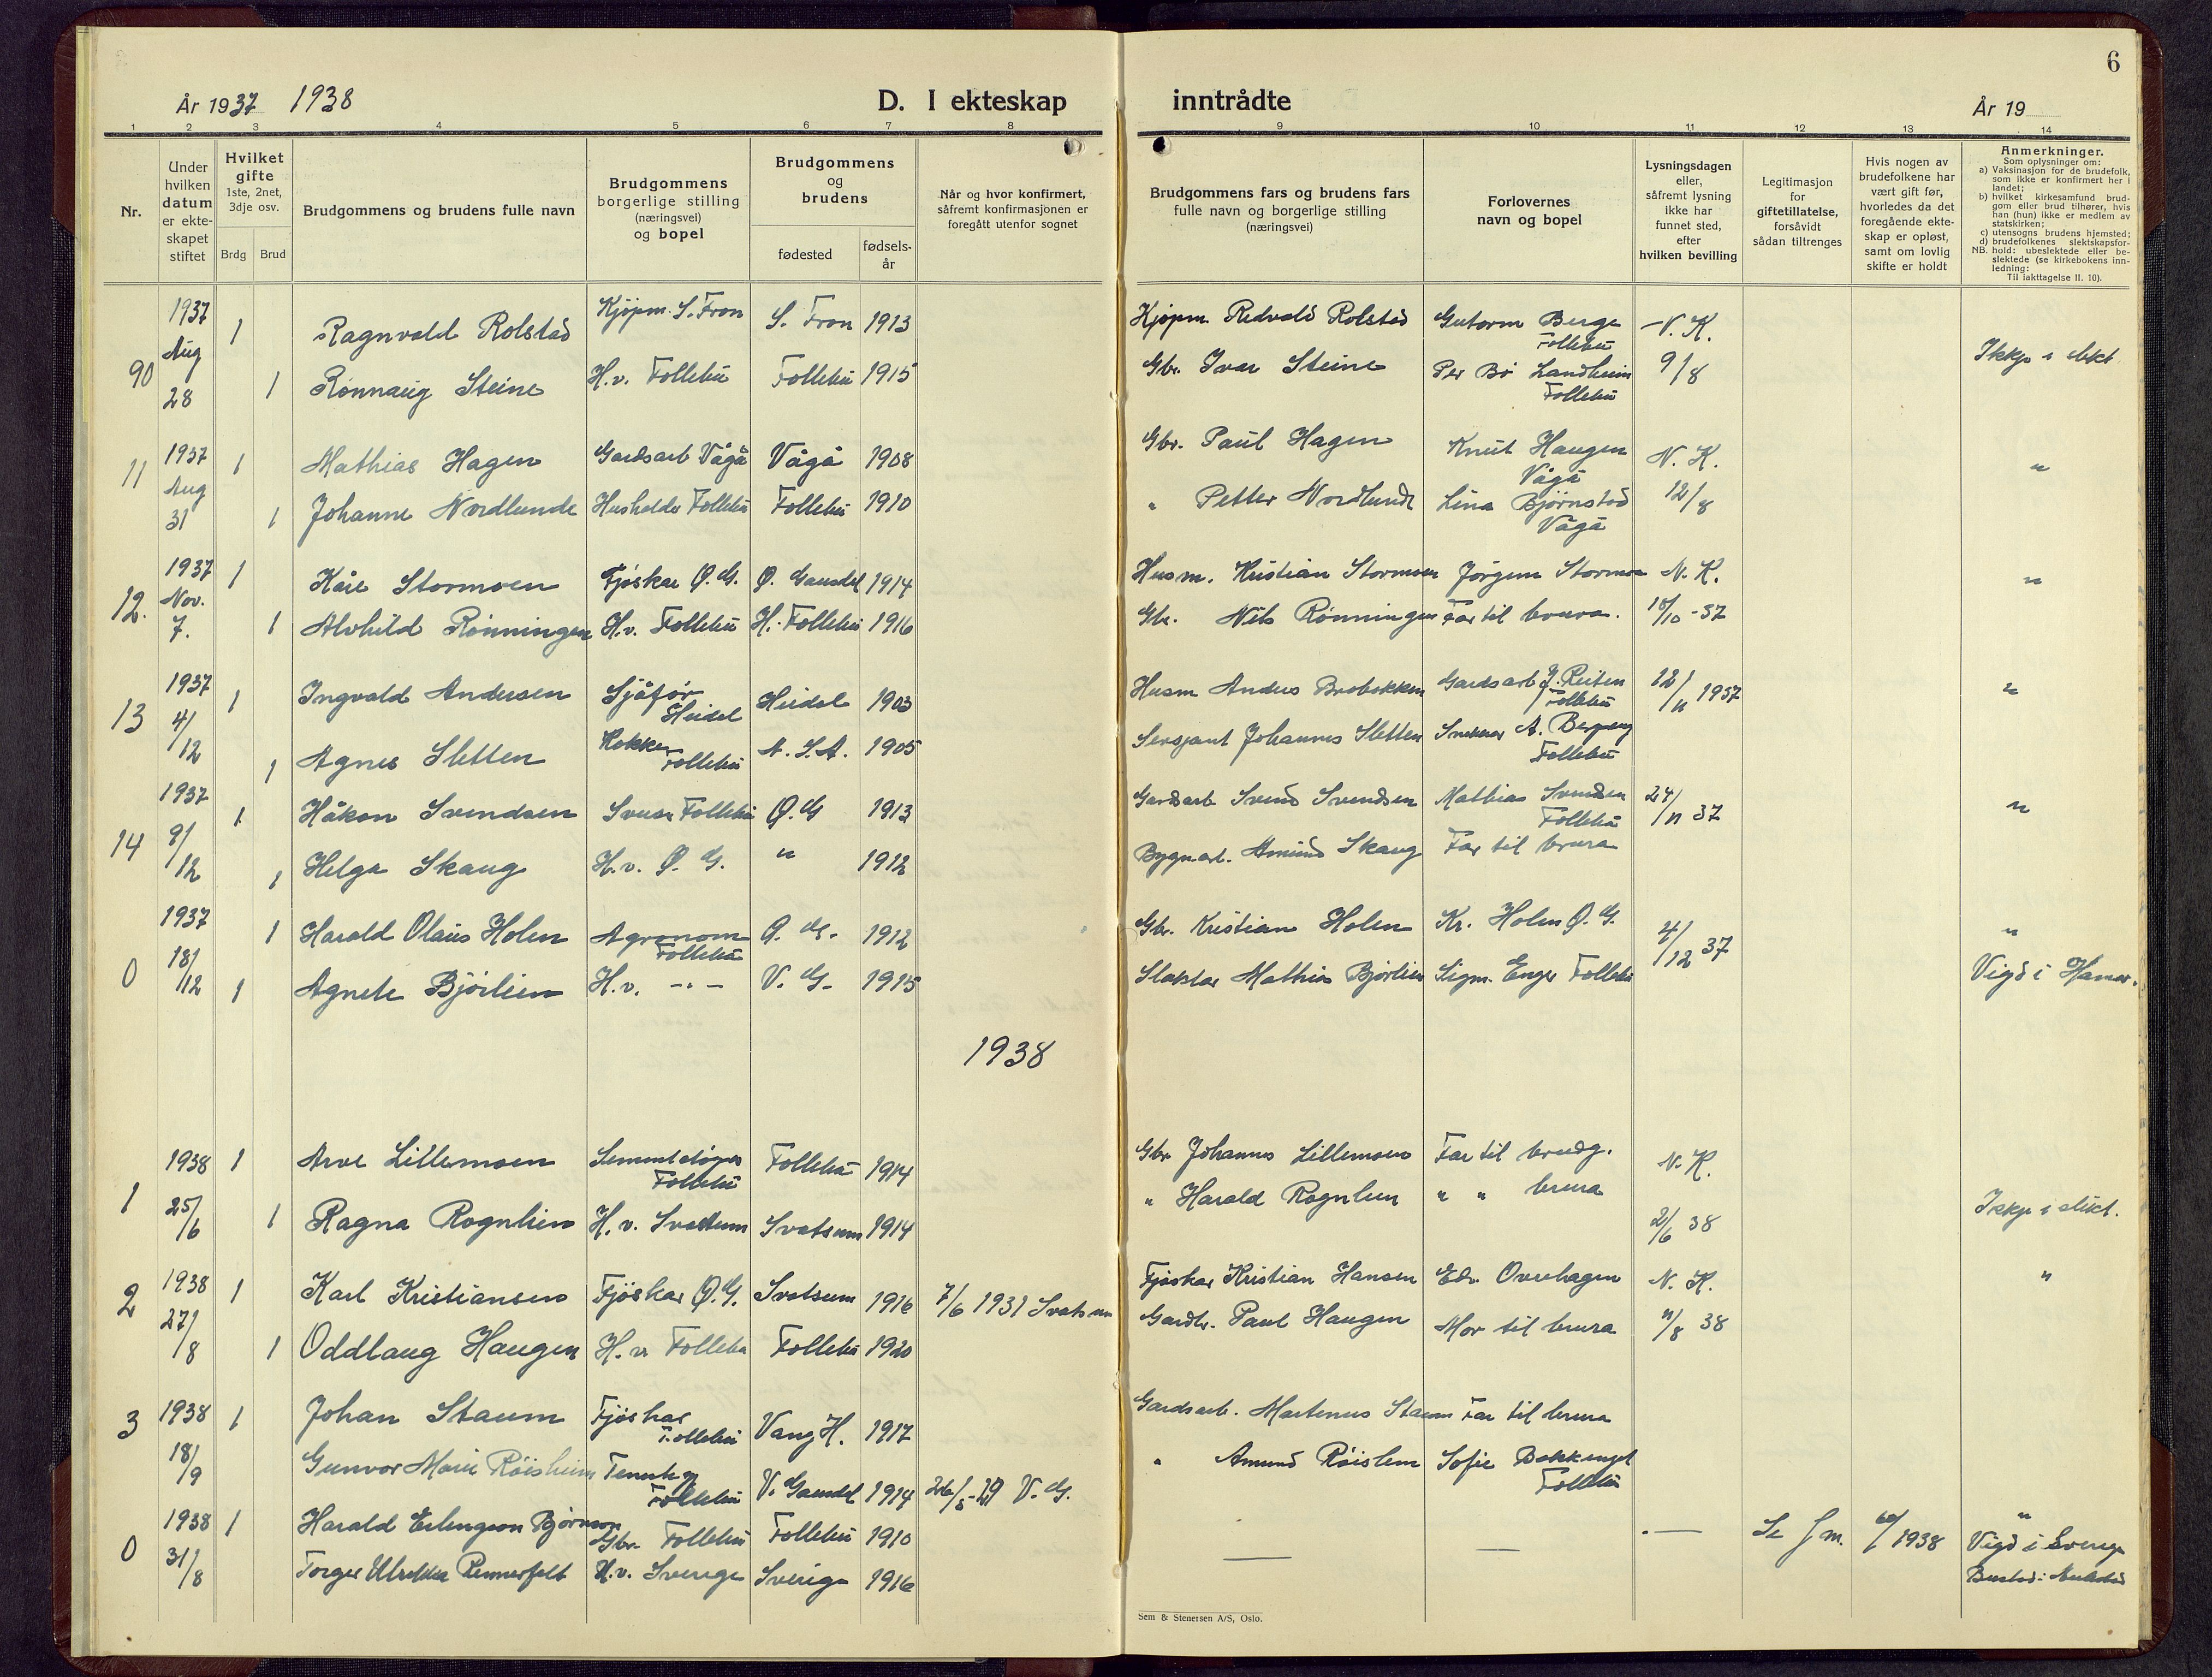 6
År 1937 1938
D. I ekteskap
inntrådte
År 19
1 2 3 4 5 6 7 8
9 10 11 12 13 14
Nr.
Under
hvilken
datum
er ekte-
skapet
stiftet
Hvilket
gifte
1ste, 2net,
3dje osv.
Brdg Brud
Brudgommens og brudens fulle navn
Brudgommens
borgerlige stilling
(næringsvei)
og bopel
Brudgommens
og
brudens
fødested
fødsels-
år
Når og hvor konfirmert,
såfremt konfirmasjonen er
foregått utenfor sognet
Brudgommens fars og brudens fars
fulle navn og borgerlige stilling
(næringsvei)
Forlovernes
navn og bopel
Lysningsdagen
eller,
såfremt lysning
ikke har
funnet sted,
efter
hvilken bevilling
Legitimasjon
for
giftetillatelse,
forsåvidt
sådan tiltrenges
Hvis nogen av
brudefolkene har
vært gift før,
hvorledes da det
foregående ekte-
skap er opløst,
samt om lovlig
skifte er holdt
Anmerkninger.
Som oplysninger om:
a) Vaksinasjon for de brudefolk,
som ikke er konfirmert her i
landet;
b) hvilket kirkesamfund brud-
gom eller brud tilhører, hvis
han (hun) ikke er medlem av
statskirken;
c) utensogns brudens hjemsted;
d) brudefolkenes slektskapsfor-
NB. hold: ubeslektede eller be-
slektede (se kirkebokens inn-
ledning:
Til iakttagelse II. 10).
1937 1 Ragnvald Rolstad Kjøpm. S. Fron S. Fron 1913 Kjøpm. Redvald Rolstad Gutorm Berge N. K.
Aug Follebu
90 28 1 Rønnaug Steine H.v. Follebu Follebu 1915 Gbr. Ivar Steine Per Bø Landheim 9/8 Ikkje i slekt
Follebu
11 1937 1 Mathias Hagen Gardsarb Vågå Vågå 1908 Gbr. Paul Hagen Knut Haugen N. K. "
Aug Vågå
31 1 Johanne Nordlunde Husholder Follebu Follebu 1910 " Petter Nordlunde Lina Bjørnstad 12/8
Vågå
12. 1937 1 Kåre Stormoen Fjøskar Ø.G. Ø. Gausdal 1914 Husm. Kristian Stormoen Jørgen Stormoen N. K. "
Nov.
7. 1 Alvhild Rønningen H.v. Follebu H. Follebu 1916 Gbr. Nils Rønningen Far til brura. 18/10-37
13 1937 1 Ingvald Andersen Sjåfør Heidal Heidal 1903 Husm Anders Brobakken Gardsarb J. Reiten Follebu 12/11 1937 "
4/12 1 Agnes Sletten Kokke Follebu A.S.A. 1905 Sersjant Johannes Sletten Snekker A. Bergeng
Follebu
14 1937 1 Håkon Svendsen Follebu Ø.G 1913 Gardsarb Svend Svendsen Mathias Svendsen Follebu 24/11 37 "
9/12 1 Helga Skaug H.v. Ø. G. " 1912 Bygn.arb. Amund Skaug Far til brura
0 1937 1 Harald Olaus Holen Agronom Follebu Ø. G. 1912 Gbr. Kristian Holen Kr. Holen Ø. G. 4/12 37 "
18/12 1 Agnete Bjørlien H.v. -"- V. G. 1915 Slaktar Mathias Bjørlien Sigm. Enger Follebu Vigd i Hamar.
1938
1 1938 1 Arve Lillemoen Sementstøper Follebu Follebu 1914 Gbr Johannes Lillemoen Far til brudg. N. K.
25/6 1 Ragna Rognlien H.v. Svatsum Svatsum 1914 " Harald Rognlien " " brura 2/6 38 Ikkje i slekt.
2 1938 1 Karl Kristiansen Fjøskar Ø.G. Svatsum 1916 7/6 1931 Svatsum Fjøskar Kristian Hansen Edv. Overhagen N. K. "
27/8 1 Oddlaug Haugen H.v. Follebu Follebu 1920 Gardbr. Paul Haugen Mor til brura 11/8 38
3 1938 1 Johan Staum Fjøskar Follebu Vang H. 1917 Gardsarb. Martinus Staum Far til brura
18/9 Gunvor Marie Røisheim Follebu V. Gausdal 1914 26/5-29 V. G. " Amund Sofie Bakkenget
Follebu
0 1938 1 Harald Erlingson Bjørnson Gbr. Follebu Follebu 1910 — — — Se J m. 1938 " Vigd i Sverige
31/8 Torger Ulrikka Rennerfelt H.v. Sverige Sverige 1916 Bustad: Aulestad
Sem & Stenersen A/S, Oslo.